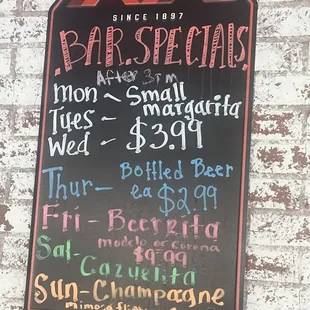 SINCE 1897
BAR SPECIALS
After 3PM
Mon ~ Small
Tues - margarita
Wed - $3.99
Thur- Bottled Beer
ea $2.99
Fri - Beerrita
modelo or Corona
$9.99
Sat- Cazuelita
Sun-Champagne